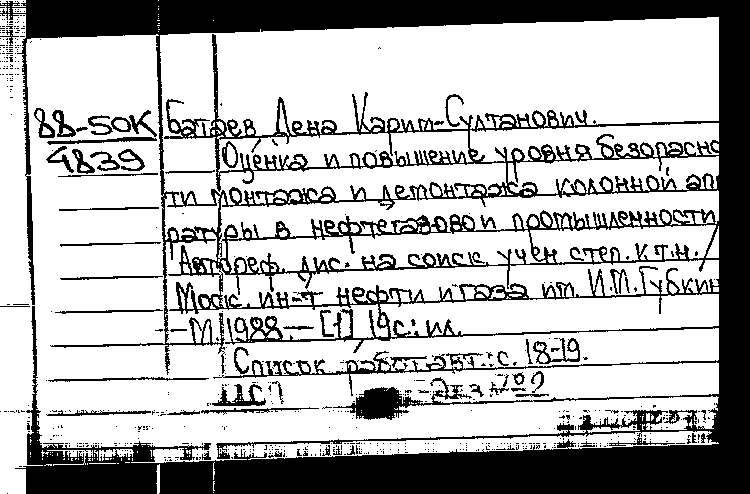 88-50К Батаев Дена Карим-Султанович.
4839 Оценка и повышение уровня безопасно
ти монтажа и демонтажа колонной апп
ратуры в нефтегазовой промышленности
Автореф. дис. на соиск. учен. степ. к.т.н. /
Моск. ин-т нефти и газа им. И.М. Губкин
-М., 1988.- [1] 19с.: ил.
Список работ авт.: с. 18-19.